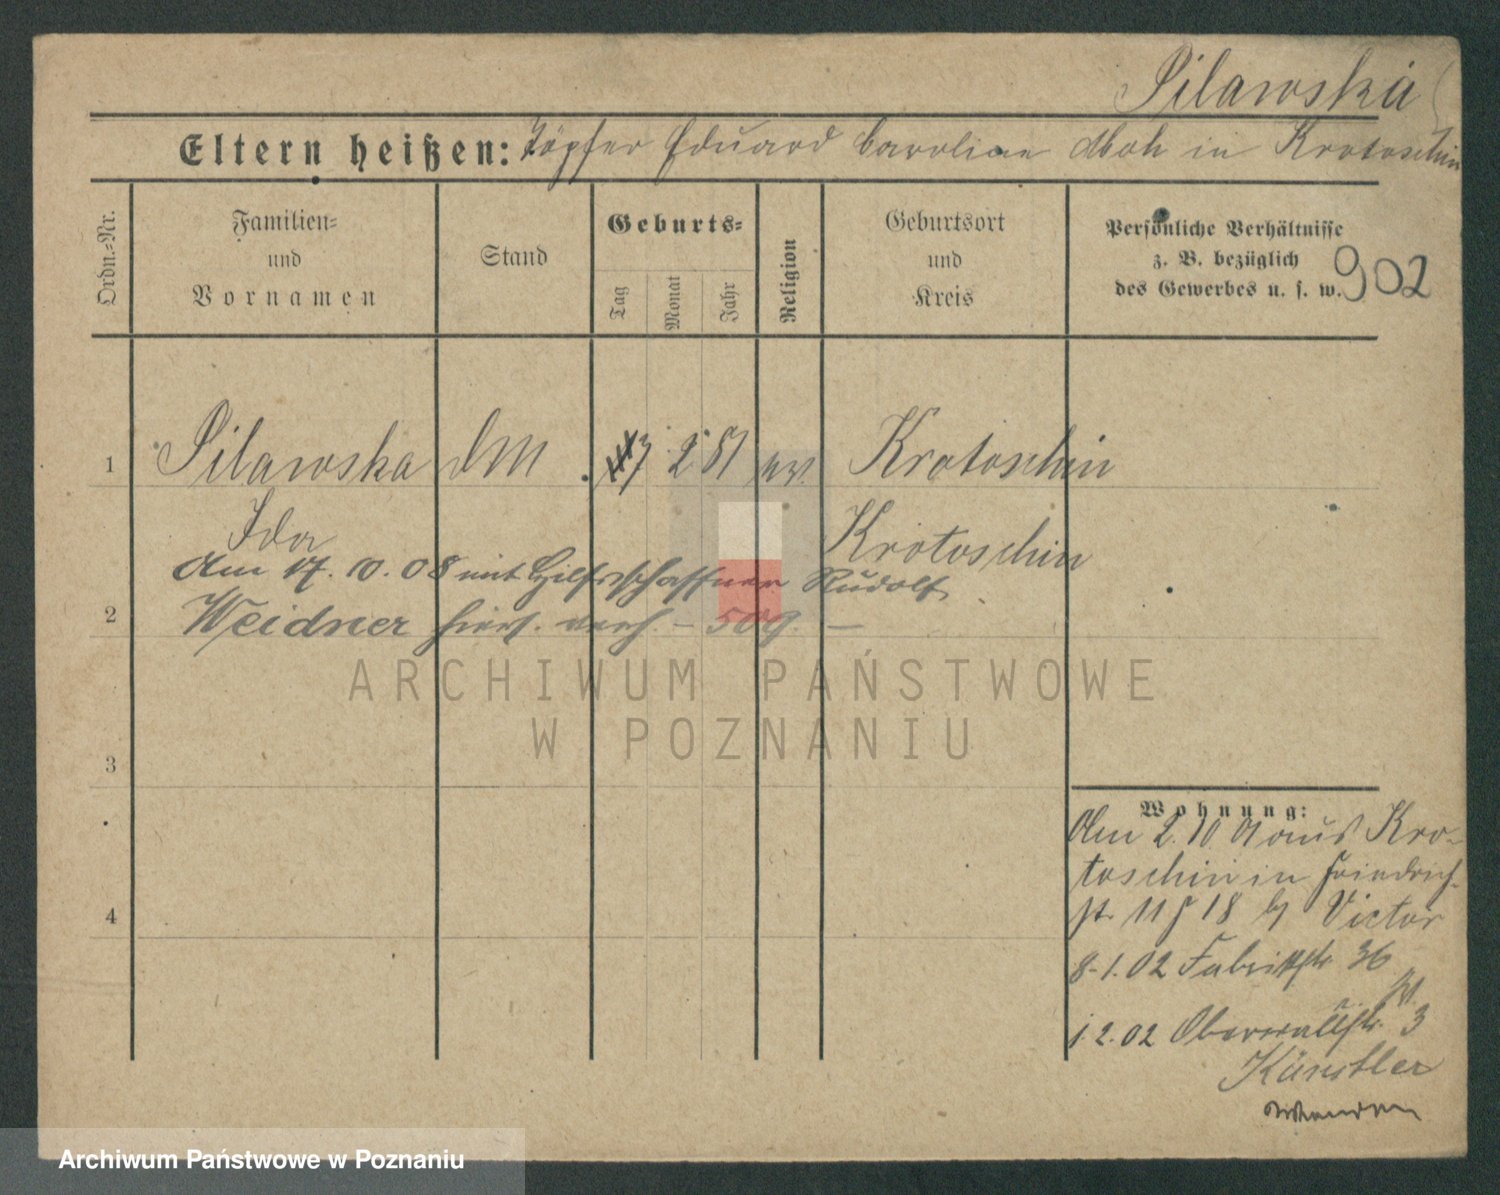 Pilawska
Eltern heißen: Töpfer Eduard Caroline in Krotoschin
Ordn.=Nr.
Familien=
und
Vornamen
Stand
Geburts=
Tag
Monat
Jahr
Religion
Geburtsort
und
Kreis
Persönliche Verhältnisse
z. B. bezüglich
des Gewerbes u. s. w.
902
1
Pilawska
DM
7
2
81
ev.
Krotoschin
Ida
Krotoschin
Am 17. 10. 08 mit Hilfsschaffner Rudolf
2
Weidner hier verh. - 509. -
ARCHIWUM PAŃSTWOWE
W POZNANIU
3
4
Wohnung:
Am 2. 10. 01 aus Kro-
toschin in Friedrich-
st. 11 18 b/ Victor
8.1.02 Fabrikstr 36
1.2.02 Oberwallstr. 3
Künstler
Archiwum Państwowe w Poznaniu